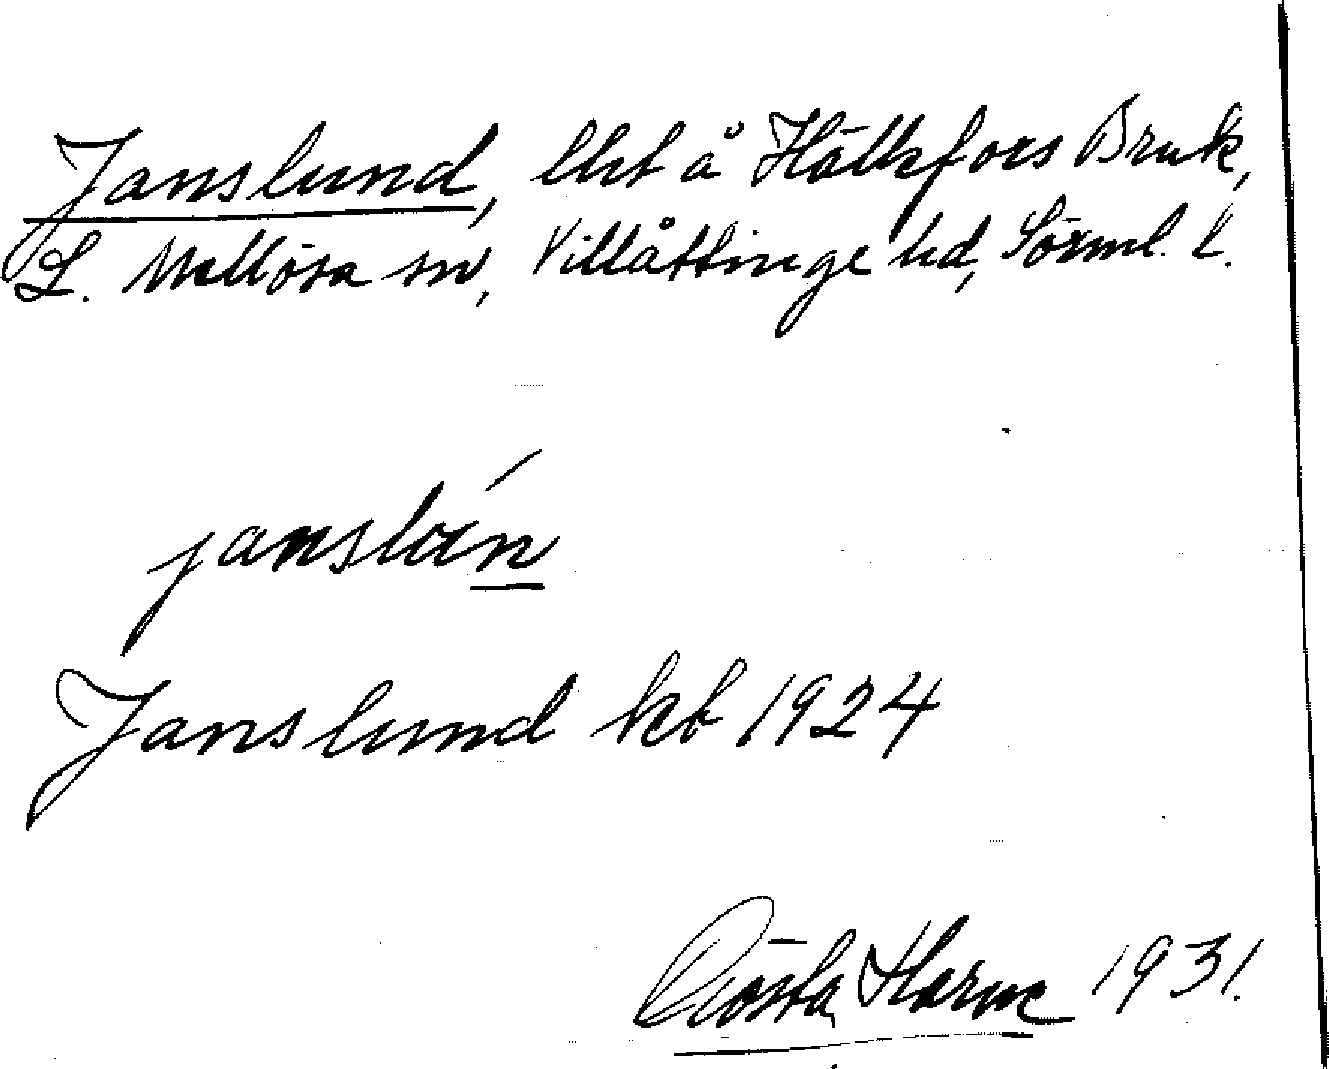 Janslund, lht å Hälleforss Bruk,
L. Mellösa sn, Villåttinge hd, Sörml. l.
Janslund kb 1924
Gösta Harne 1931.